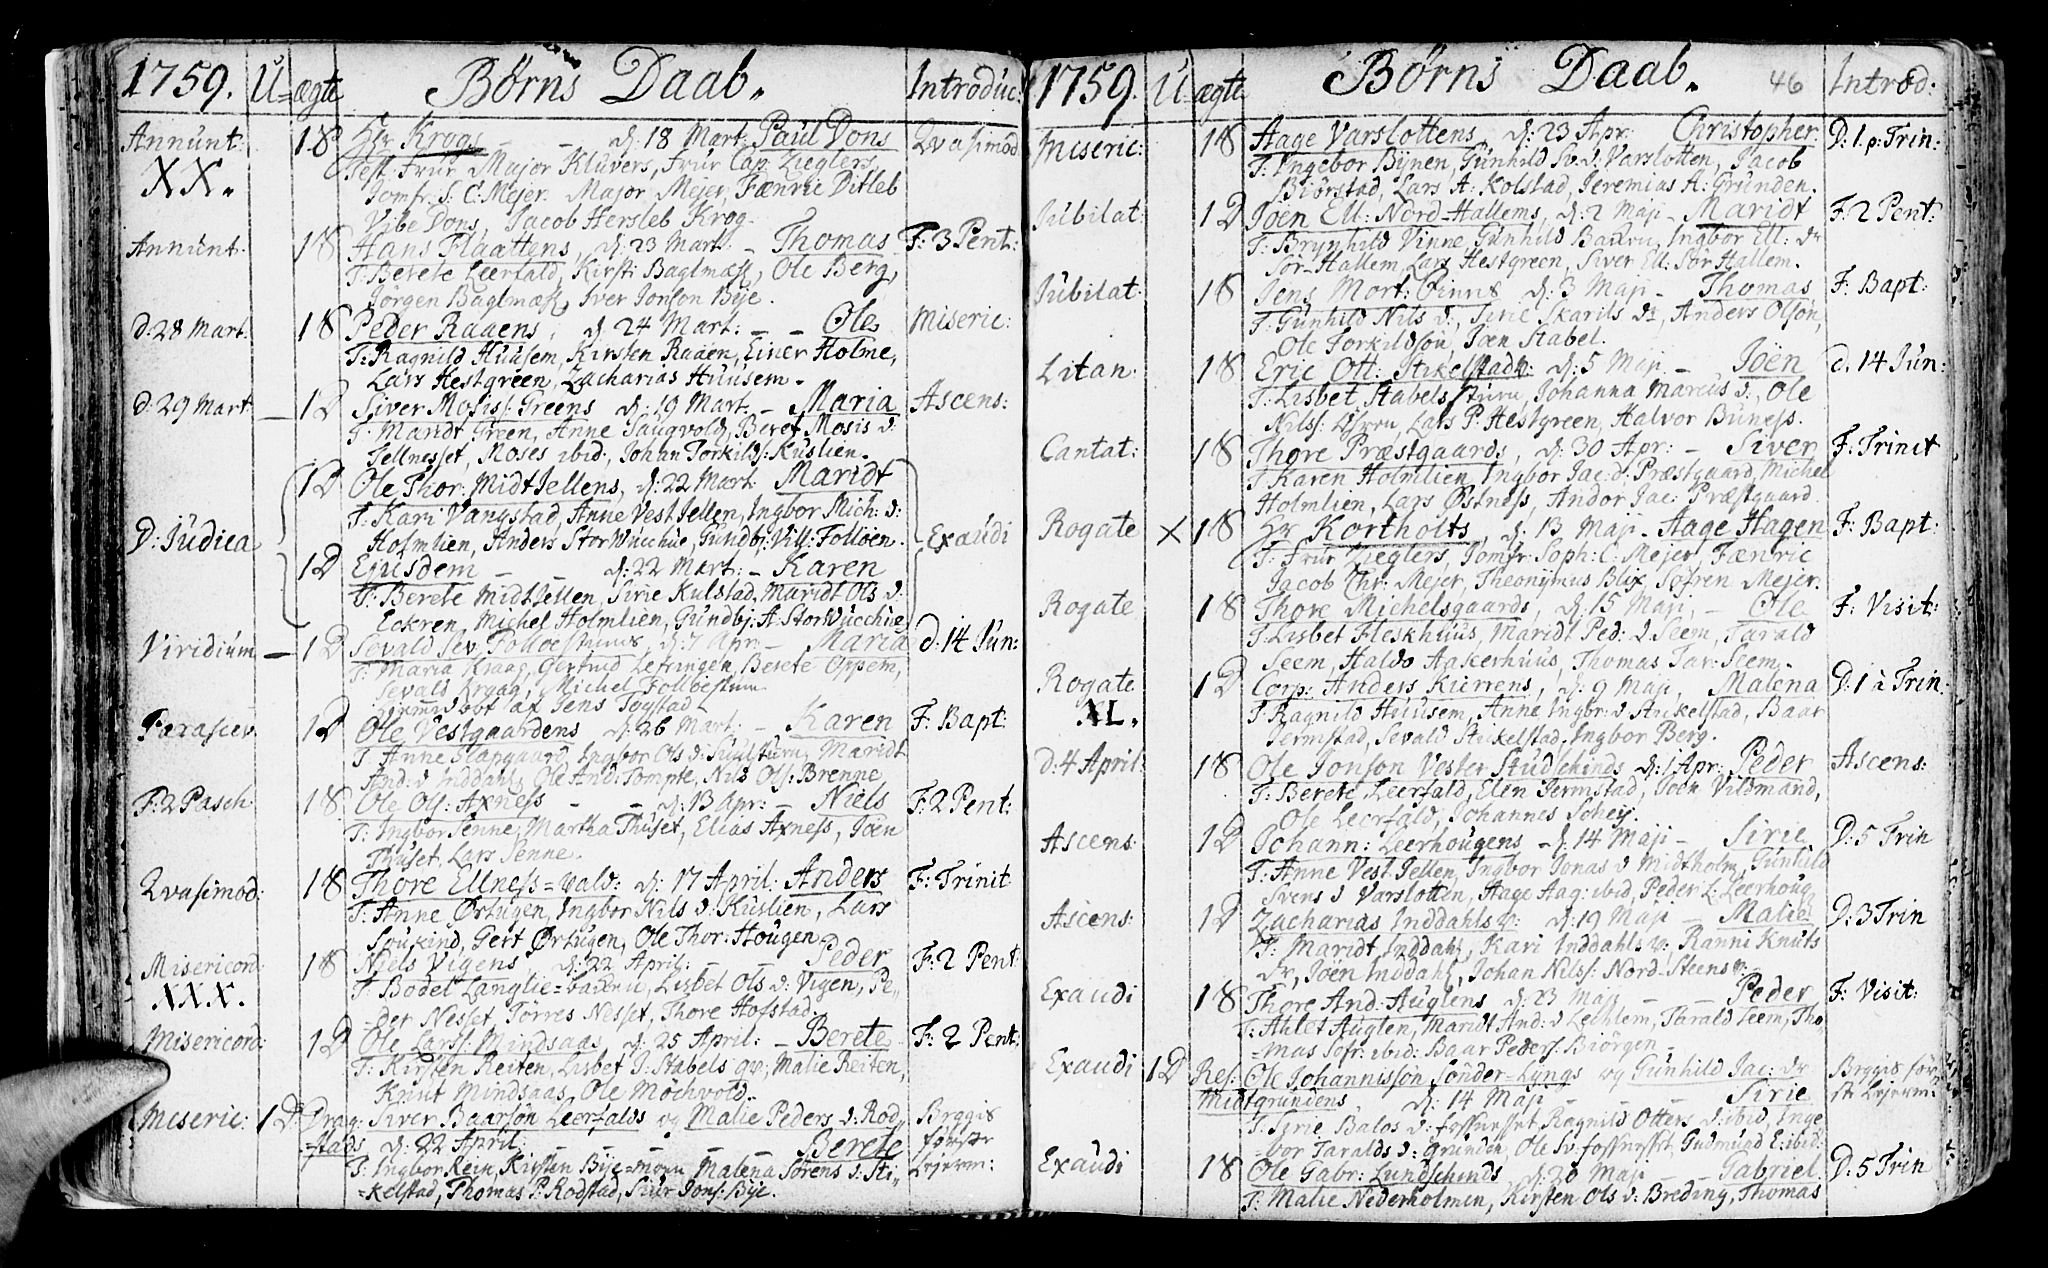 1759. U= ægte Børns Daab. Introduc:
Annunt: 18 Hr Krogs - - d: 18 Mart: Paul Dons Qvasimod
XX. Test. Frue Major Klüvers, Frur Cap: Zieglers,
Jomfr. S. C. Mejer. Major Mejer, Fænric Ditleb
Vibe Dons, Jacob Hersleb Krog.
Annunt. 18 Hans Flaattens, d: 23 Mart. - Thomas F: 3 Pent:
T: Berete Leerfald, Kirsti Baglmæss, Ole Berg,
Jörgen Baglmæss, Iver Jonson Bÿe.
d: 28 Mart. 18 Peder Raaens, d: 24 Mart: - - Ole Miseric:
T: Ragnild Huusem, Kirsten Raaen, Einer Holme,
Lars Hestgreen, Zacharias Huusem.
d: 29 Mart. - 1D Siver Mosiss: Greens d: 19 Mart. - Maria Ascens:
T: Maridt Green, Anne Saugvold, Beret Mosis d:
Tellnesset, Moses ibid, Johan Torkilds: Kuslien.
1D Ole Thor: MidtJellens, d: 22 Mart: Maridt
T: Kari Vangstad, Anne VestJellen, Ingbor Mich: d:
D: Judica Holmlien, Anders StorWucchue, Gundbj: Vill: Folloen. Exaudi
1D Ejusdem - - d: 22 Mart: - Karen
T: Berete MidtJellen, Sirie Kulstad, Maridt Ols d:
Eckren, Michel Holmlien, Gundbj: A: StorWucchue
Viridium - 1D Sevald Sev: Folloestuens, d: 7 Apr: - Maria d: 14 Jun:
T: Maria Kraag, Gertrud Letringen, Berete Oppem,
Sevald Kraag, Michel Folloestum
af Jens Togstad
Parascev. 1D Ole Vestgaardens d: 26 Mart: - Karen F: Bapt:
T: Anne Slapgaard, Ingbor Ols d: Maridt
And: d Inddahl, Ole And: Tompte, Nils Ols: Brenne
F: 2 Pasch: 18 Ole Ols: Axness - - d: 13 Apr: - Niels F: 2 Pent:
T: Ingbor Senne, Martha Thuset, Elias Axness, Joen
Thuset, Lars Senne.
Qvasimod: 18 Thore Ellness=vald: d: 17 April: Anders F: Trinit
T: Anne Ørtugen, Ingbor Nils d: Kuslien, Lars
Soukind, Gert Ørtugen, Ole Thor: Hougen.
Misericord: 18 Niels Vigens, d: 22 April: - - Peder F: 2 Pent:
XXX. T: Bodel Langlie= Lisbet Ols d: Vigen, Pe-
-der Nesset, Törres Nesset, Thore Hofstad.
Misericord: 1D Ole Larss: Mindsaas, d: 25 April: - Berete F: 2 Pent:
T: Kirsten Reiten, Lisbet J: Stabels qv:, Malie Reiten,
Knut Mindsaas, Ole Mochvold.
Miseric: 1D Drag: Siver Baarsön Leerfalds og Malie Peders d: Rod Beggis
-stads d: 22 April: - - Berete förste
T: Ingbor Rein, Kirsten Bÿe=moen Malena Sörens d: Sti- Lejerm:
-kelstad, Thomas P: Rodstad, Siur Jons: Bÿe.
1759. U= ægte Børns Daab. 46 Introd:
Miseric: 18 Aage Varslottens, d: 23 Apr: Christopher D: 1. p: Trin:
T: Ingebor Bÿnen, Gunhild Sv: d: Varslotten, Jacob
Biörstad, Lars A: Kolstad, Jeremias A: Grunden.
Jubilat: 1D Joen Ell: Nord-Hallems, d: 2 Maji - Maridt F: 2 Pent:
T: Brynhild Vinne, Gunhild Ingbor Ell: dr
Sör-Hallem, Lars Hestgreen, Siver Ell: Sör Hallem.
Jubilat 18 Jens Mort: Qvinns d: 3 Maji - Thomas F: Bapt:
T: Gunhild Nils d:, Sirie Skarils dr, Anders Olsön,
Ole Torkildsön, Joen Stabel.
Litan: 18 Eric Ott: Stikelstads: d: 5 Maji - Joen d. 14 Jun:
T: Lisbet Stabels Johanna Marcus d:, Ole
Nilss: Lars P: Hestgreen, Halvor Buness.
Cantat: 18 Thore Præstgaards, d: 30 Apr: - Siver F: Trinit
T: Karen Holmlien, Ingbor Jac: d: Præstgaard, Michel
Holmlien, Lars Østness, Andor Jac: Præstgaard.
Rogate X 18 Hr Kortholts, d: 13 Maji. Aage Hagen F: Bapt:
T: Frur Zieglers, Jomfr Soph: C: Mejer, Fænric
Jacob Chr: Mejer, Theonÿmus Blix, Sofren Mejer.
Rogate 18 Thore Michelsgaards, d: 15 Maji, - Ole F: Visit:
T: Lisbet Fleskhuus, Maridt Ped: d Seem, Tarald
Seem, Haldo Aakerhuus, Thomas Tar: Seem.
Rogate 1D Corp: Anders Kierrens, d: 9 Maji, Malena D: 1 à Trin:
XL. T: Ragnild Huusem, Anne Ingbr: d Stikelstad, Baar
Jermstad, Sevald Stikelstad, Ingbor Berg.
d: 4 April: 18 Ole Jonson Vester Studskinds d: 1 Apr: Peder Ascens:
T: Berete Leerfald, Elen Jermstad, Joen Vildmand,
Ole Leerfald, Johannes Scheÿ.
Ascens: 1D Johann: Leerhougens d: 14 Maji - Sirie D: 5 Trin
T: Anne VestJellen, Ingbor Jonas d Midtholm, Gunhild
Svens d Varslotten, Aage Aag: ibid, Peder L: Leerhoug
Ascens: 1D Zacharias Inddahls v: d: 19 Maji - Malie D: 3 Trin
T: Maridt Inddahl, Kari Inddahls v: Ranni Knuts
Dr, Joen Inddahl, Johan Nilss: Nord-Steens v:
Exaudi 18 Thore And: Auglens d: 23 Maji - - Peder F: Visit:
T: Ahlet Auglen, Maridt And: d Lechlem, Tarald Seem, Tho
=mas Sofr: ibid: Baar Peders: Biörgen -
Exaudi 1D Res: Ole Johannissön Sönder-Lyngs og Gunhild Jac: dr Beggis för
Midtgrundens, d: 14 Maji - - Sirie ste Lejerm:
T: Sirie Balos d: fossnesset, Ragnild Otters d: ibid, Inge
bor Taralds d: Grunden, Ole Sv: fossnesset, Gudmund E: ibid:
Exaudi 18 Ole Gabr: Lundskinds d: 20 Maji Gabriel. D: 5 Trin
T: Malie Nederholmen, Kirsten Ols d: Breding, Thomas